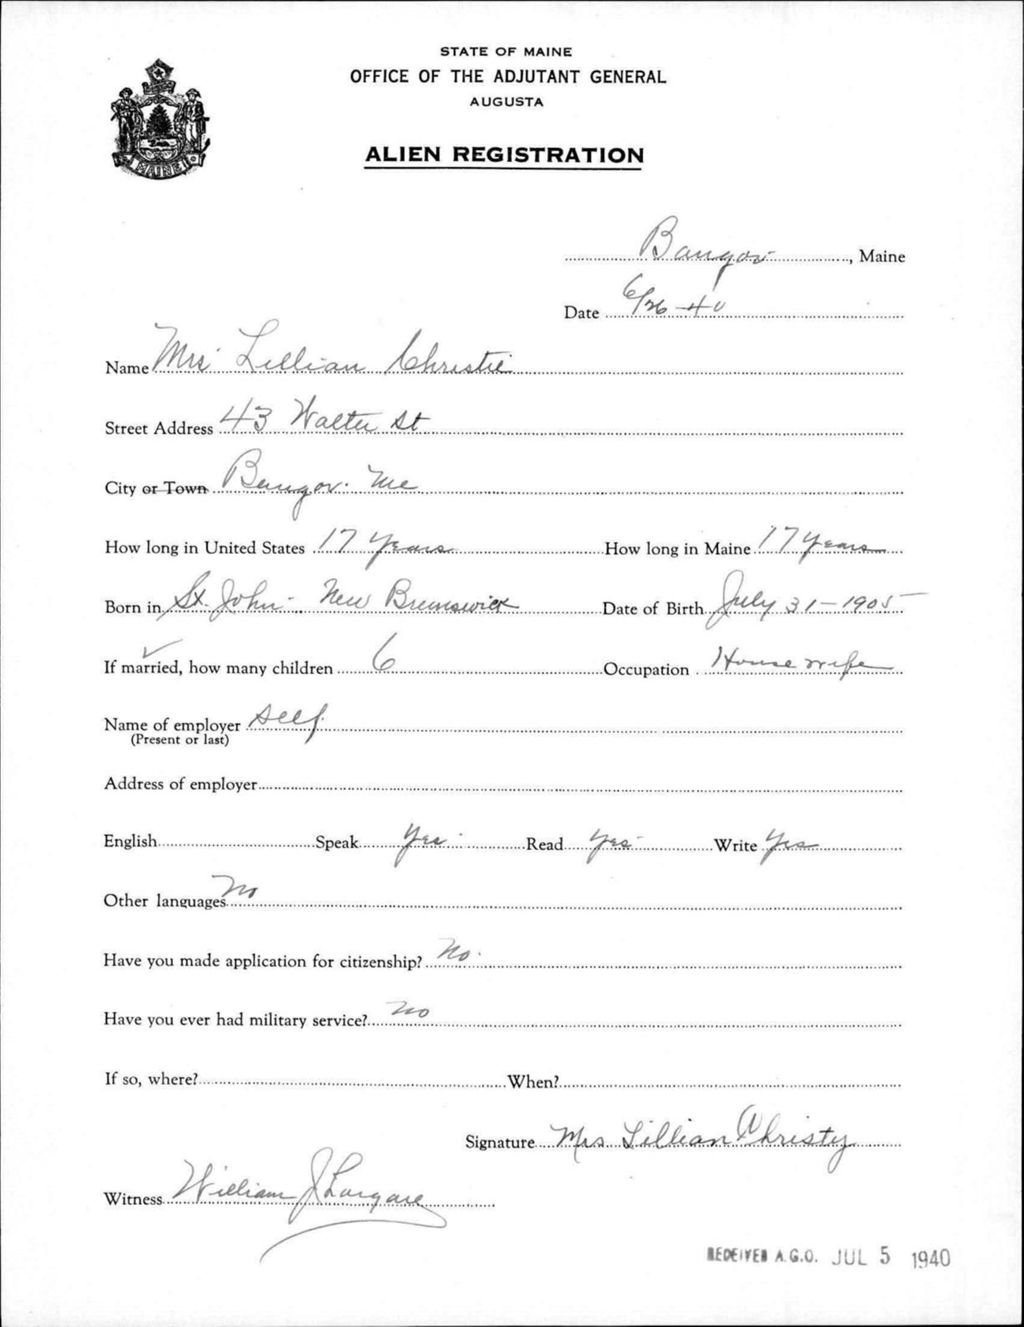 STATE OF MAINE
OFFICE OF THE ADJUTANT GENERAL
AUGUSTA
ALIEN REGISTRATION
MAINE
Bangor, Maine
Date 6/26-40
Name Mrs Lillian Christie
Street Address 43 Walter St
City or Town Bangor. Me
How long in United States 17 years How long in Maine 17 years
Born in St. John - New Brunswick Date of Birth July 31-1905
If married, how many children 6 Occupation House wife
Name of employer self
(Present or last)
Address of employer
English Speak Yes Read Yes Write Yes
Other languages No
Have you made application for citizenship? No.
Have you ever had military service? No
If so, where? When?
Signature Mrs Lillian Christy
Witness William J
RECEIVED A.G.O. JUL 5 1940